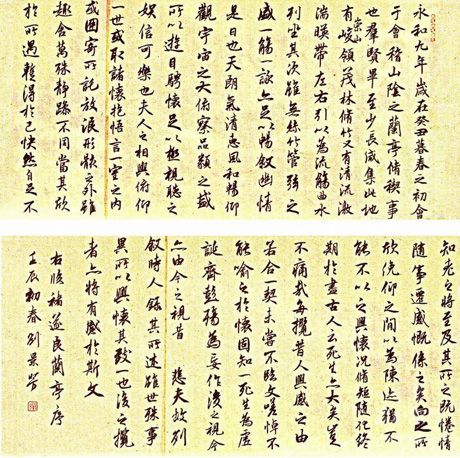 永和九年歲在癸丑暮春之初會
于會稽山陰之蘭亭脩稧事
也群賢畢至少長咸集此地
有崇山峻領茂林脩竹又有清流激
湍暎帶左右引以為流觴曲水
列坐其次雖無絲竹管弦之
盛一觴一詠亦足以暢叙幽情
是日也天朗氣清惠風和暢仰
觀宇宙之大俯察品類之盛
所以遊目騁懷足以極視聽之
娛信可樂也夫人之相與俯仰
一世或取諸懷抱悟言一室之內
或因寄所託放浪形骸之外雖
趣舍萬殊靜躁不同當其欣
於所遇暫得於己怏然自足不
知老之將至及其所之既惓情
隨事遷感慨係之矣向之所
欣俛仰之間以為陳迹猶不
能不以之興懷況脩短隨化終
期於盡古人云死生亦大矣豈
不痛哉每攬昔人興感之由
若合一契未嘗不臨文嗟悼不
能喻之於懷固知一死生為虛
誕齊彭殤為妄作後之視今
亦由今之視昔 悲夫故列
叙時人錄其所述雖世殊事
異所以興懷其致一也後之攬
者亦將有感於斯文
右臨褚遂良蘭亭序
壬辰初春刘景